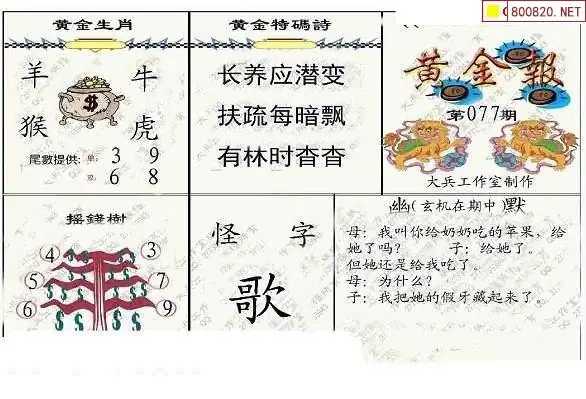 800820.NET
黄金生肖
羊 牛
猴 虎
尾數提供: 单: 3 9
双: 6 8
黄金特碼詩
长养应潜变
扶疏每暗飘
有林时杳杳
黄金報
第077期
大兵工作室制作
摇錢樹
4 3
5 7
6 9
怪 字
歌
幽(玄机在期中)默
母：我叫你给奶奶吃的苹果，给
她了吗？ 子：给她了。
但她还是给我吃了。
母：为什么？
子：我把她的假牙藏起来了。